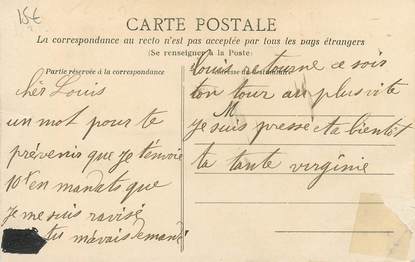 15€
CARTE POSTALE
La correspondance au recto n'est pas acceptée par tous les pays étrangers
(Se renseigner à la Poste)
Partie réservée à la correspondance
chér Louis
un mot pour te
prévenir que je t'envoie
10f en mandats que
je me suis ravisé
tu m'avais demandé
Louis retourne ce soir
ton tour au plus vite
M
je suis pressé a bientôt
ta tante virginie